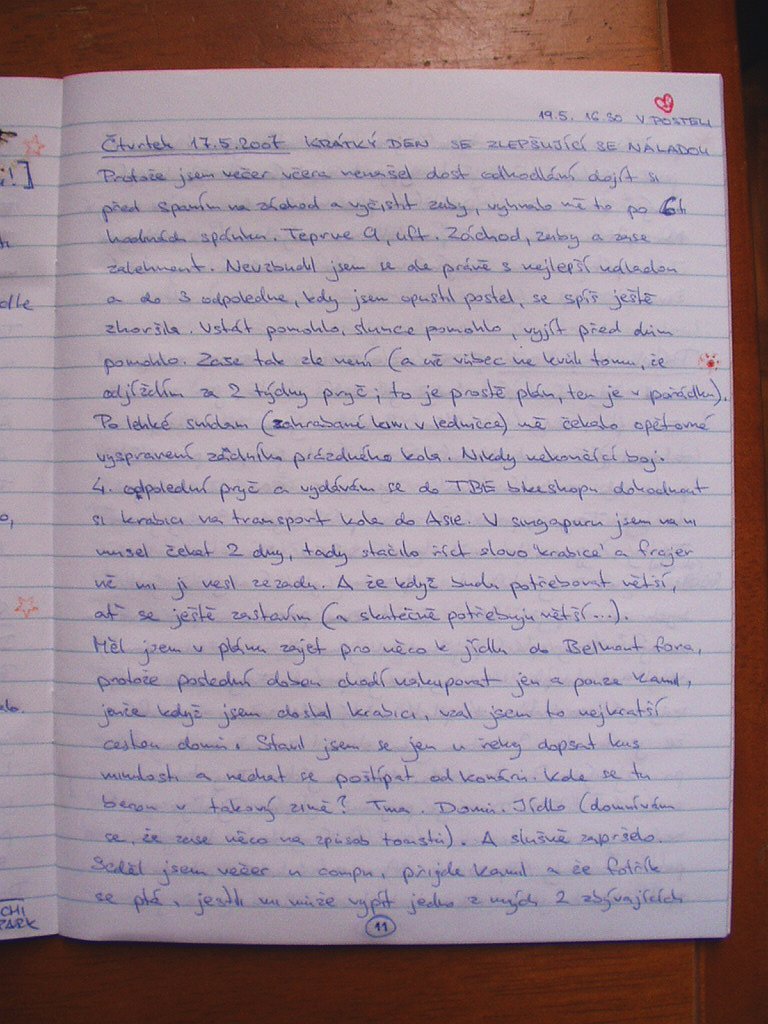 19.5. 16.30 V POSTELI
Čtvrtek 17.5.2007 KRÁTKÝ DEN SE ZLEPŠUJÍCÍ SE NÁLADOU
Protože jsem večer včera nenašel dost odhodlání dojít si
před spaním na záchod a vyčistit zuby, vyhnalo mě to po 6ti
hodinách spánku. Teprve 9, uft. Záchod, zuby a zase
zalehnout. Nevzbudil jsem se ale právě s nejlepší náladou
a do 3 odpoledne, kdy jsem opustil postel, se spíš ještě
zhoršila. Vstát pomohlo, slunce pomohlo, vyjít před dům
pomohlo. Zase tak zle není (a ně vůbec ne kvůli tomu, že
odjíždím za 2 týdny pryč; to je prostě plán, ten je v pořádku).
Po lehké snídani (zahrabané kiwi v ledničce) mě čekalo opětovné
vyspravení zadního prázdného kola. Nikdy nekončící boj.
4. odpolední pryč a vydávám se do TBE bikeshopu dohodnout
si krabici na transport kola do Asie. V singapuru jsem na ni
musel čekat 2 dny, tady stačilo říct slovo 'krabice' a frajer
už mi ji nesl zezadu. A že když budu potřebovat větší,
ať se ještě zastavím (a skutečně potřebuju větší...).
Měl jsem v plánu zajet pro něco k jídlu do Belmont fora,
protože poslední dobou chodí nakupovat jen a pouze Kamil,
jenže když jsem dostal krabici, vzal jsem to nejkratší
cestou domů. Stavil jsem se jen u řeky dopsat kus
minulosti a nechat se poštípat od komárů. Kde se tu
berou v takový zimě? Tma. Domů. Jídlo (domnívám
se, že zase něco na způsob toustů). A slušně zapršelo.
Seděl jsem večer u compu, přijde Kamil a že Fotřík
se ptá, jestli mi může vypít jedno z mých 2 zbývajících
11
dle
CHI
PARK